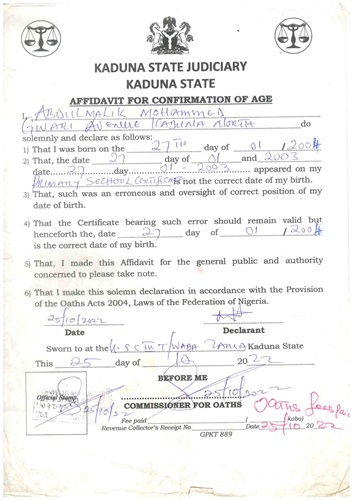 KADUNA STATE JUDICIARY
KADUNA STATE
AFFIDAVIT FOR CONFIRMATION OF AGE
I, ABDULMALIK MOHAMMED
GWARI AVENUE KADUNA NORTH do
solemnly and declare as follows:
1) That I was born on the 27TH day of 01 / 2004
2) That, the date 27 day of 01 and 2003
date 27 day 01 - 2003 appeared on my
PRIMARY SECHOOL CERTIFICATE is not the correct date of my birth.
3) That, such was an erroneous and oversight of correct position of my
date of birth.
4) That the Certificate bearing such error should remain valid but
henceforth the, date 27 day of 01 / 2004
is the correct date of my birth.
5) That, I made this Affidavit for the general public and authority
concerned to please take note.
6) That I make this solemn declaration in accordance with the Provision
of the Oaths Acts 2004, Laws of the Federation of Nigeria.
25/10/2022
Date Declarant
Sworn to at the Kaduna State
This 25 day of 10 2022
BEFORE ME
25/10/2022
Official Stamp
25/10/22
COMMISSIONER FOR OATHS
Oaths fees paid
Fee paid (kobo)
Revenue Collector's Receipt No Date 25/10 2022
GPKT 889